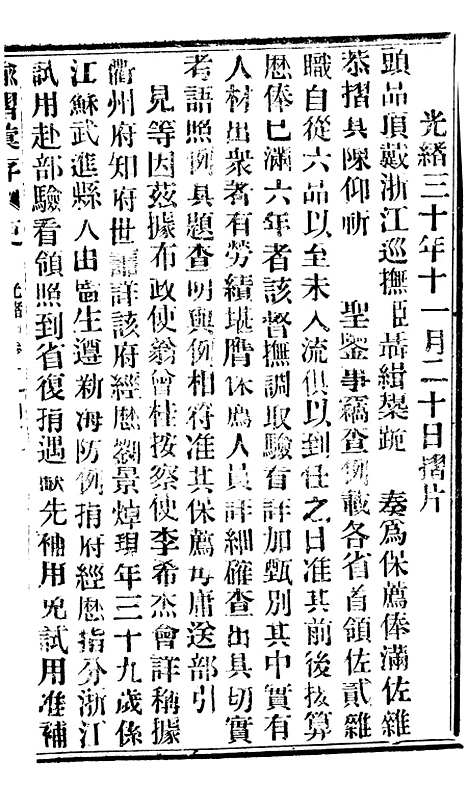 光緒三十年十一月二十日摺片
頭品頂戴浙江巡撫臣聶緝槼跪 奏爲保薦俸滿佐雜
恭摺具陳仰祈 聖鑒事竊查例載各省首領佐貳雜
職自從六品以至未入流俱以到任之日准其前後接算
歷俸已滿六年者該督撫調取驗看詳加甄別其中實有
人材出衆著有勞績堪膺保薦人員詳細確查出具切實
考語照例具題查明與例相符准其保薦毋庸送部引
見等因茲據布政使翁曾桂按察使李希杰會詳稱據
衢州府知府世善詳該府經歷劉景焯現年三十九歲係
江蘇武進縣人由監生遵新海防例捐府經歷指分浙江
試用赴部驗看領照到省復捐遇缺先補用免試用准補
諭摺彙存